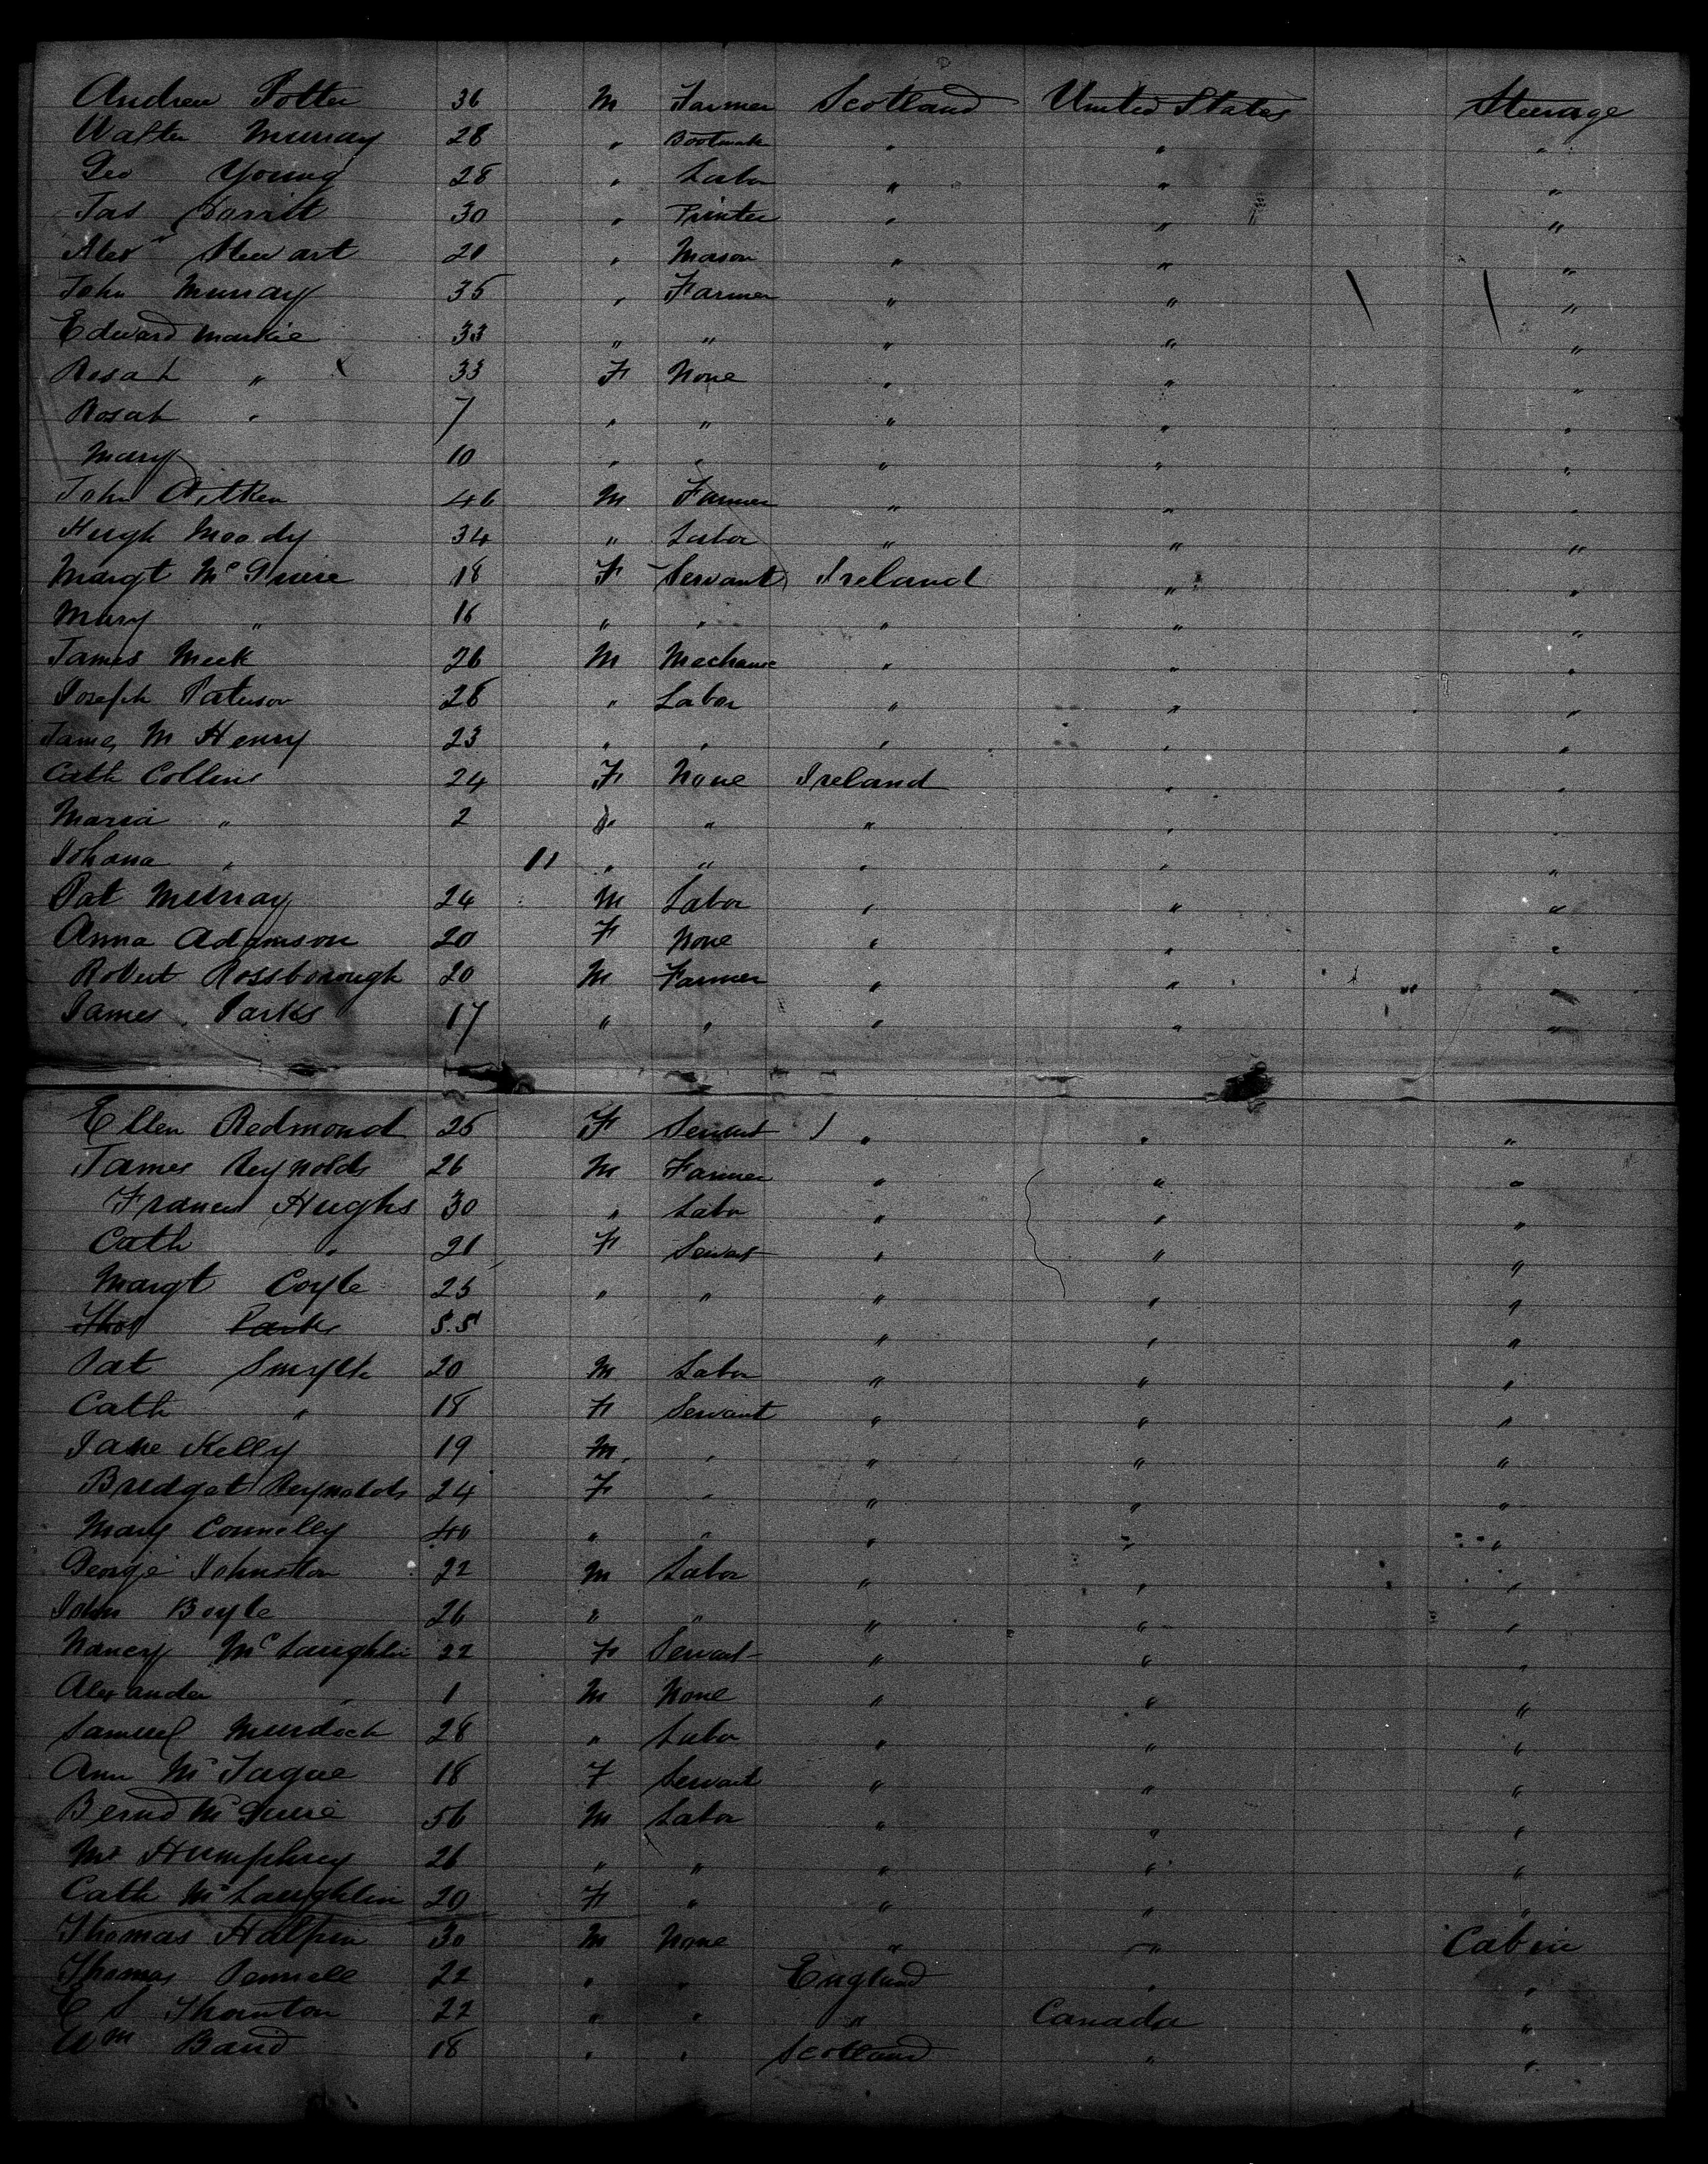 Andrew Potter 36 M Farmer Scotland United States Steerage
Walter Murray 28 " Bootmak " " "
Geo Young 28 " Labor " " "
Jas 30 " Printer " " "
Alexr Stewart 21 " Mason " " "
John Murray 35 " Farmer " " "
Edward Markie 33 " " " " "
Rosah " 33 F None " " "
Rosah " 7 " " " " "
Mary 10 " " " " "
John Aitken 46 M Farmer " " "
Hugh Moody 34 " Labor " " "
Margt McGuire 18 F Servant Ireland " "
Mary " 16 " " " " "
James Meek 26 M Mechanic " " "
Joseph Paterson 28 " Labor " " "
James McHenry 23 " " " " "
Cath Collins 24 F None Ireland " "
Maria " 2 " " " " "
Johana " 11 " " " " "
Pat Murray 24 M Labor " " "
Anna Adamson 20 F None " " "
Robert Rossborough 20 M Farmer " " "
James Parks 17 " " " " "
Ellen Redmond 25 F Servant " " "
James Reynolds 26 M Farmer " " "
Francis Hughs 30 " Labor " " "
Cath " 21 F Servant " " "
Margt Coyle 25 " " " " "
Thos Parks 55 " " "
Pat Smyth 20 M Labor " " "
Cath " 18 F Servant " " "
Jane Kelly 19 M " " " "
Bredget Reynolds 24 F " " " "
Mary Connelly 40 " " " " "
George Johnston 22 M Labor " " "
John Boyle 26 " " " " "
Nancy McLaughlin 22 F Servant " " "
Alexander " 1 M None " " "
Samuel Murdock 28 " Labor " " "
Ann McTague 18 F Servant " " "
Bernd McGuire 56 M Labor " " "
Mr Humphrey 26 " " " " "
Cath McLaughlin 20 F " " " "
Thomas Halpin 30 M None " " Cabin
Thomas Pennell 22 " " England " "
E S Thornton 22 " " " Canada "
Wm Band 18 " " Scotland " "